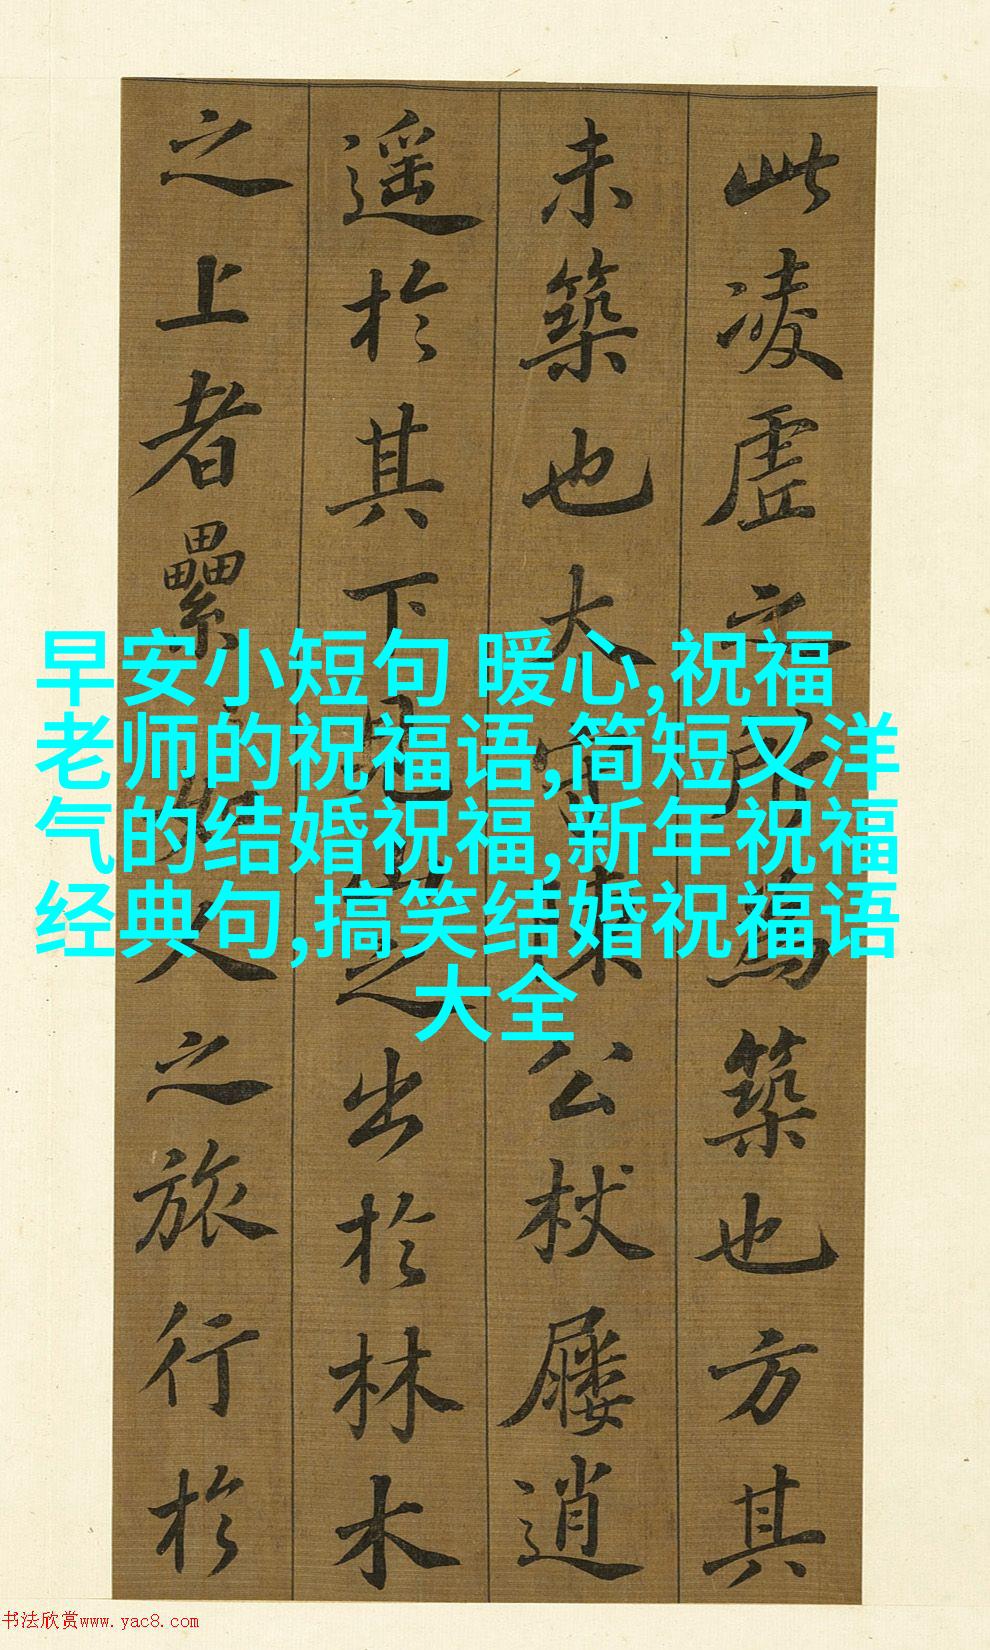 此凌虛之所為築也方其
未築也大守陳公杖屨逍
遥於其下見山之出於林木
之上者纍如人之旅行於
早安小短句 暖心,祝福
老师的祝福语,简短又洋
气的结婚祝福,新年祝福
经典句,搞笑结婚祝福语
大全
书法欣赏www.yac8.com